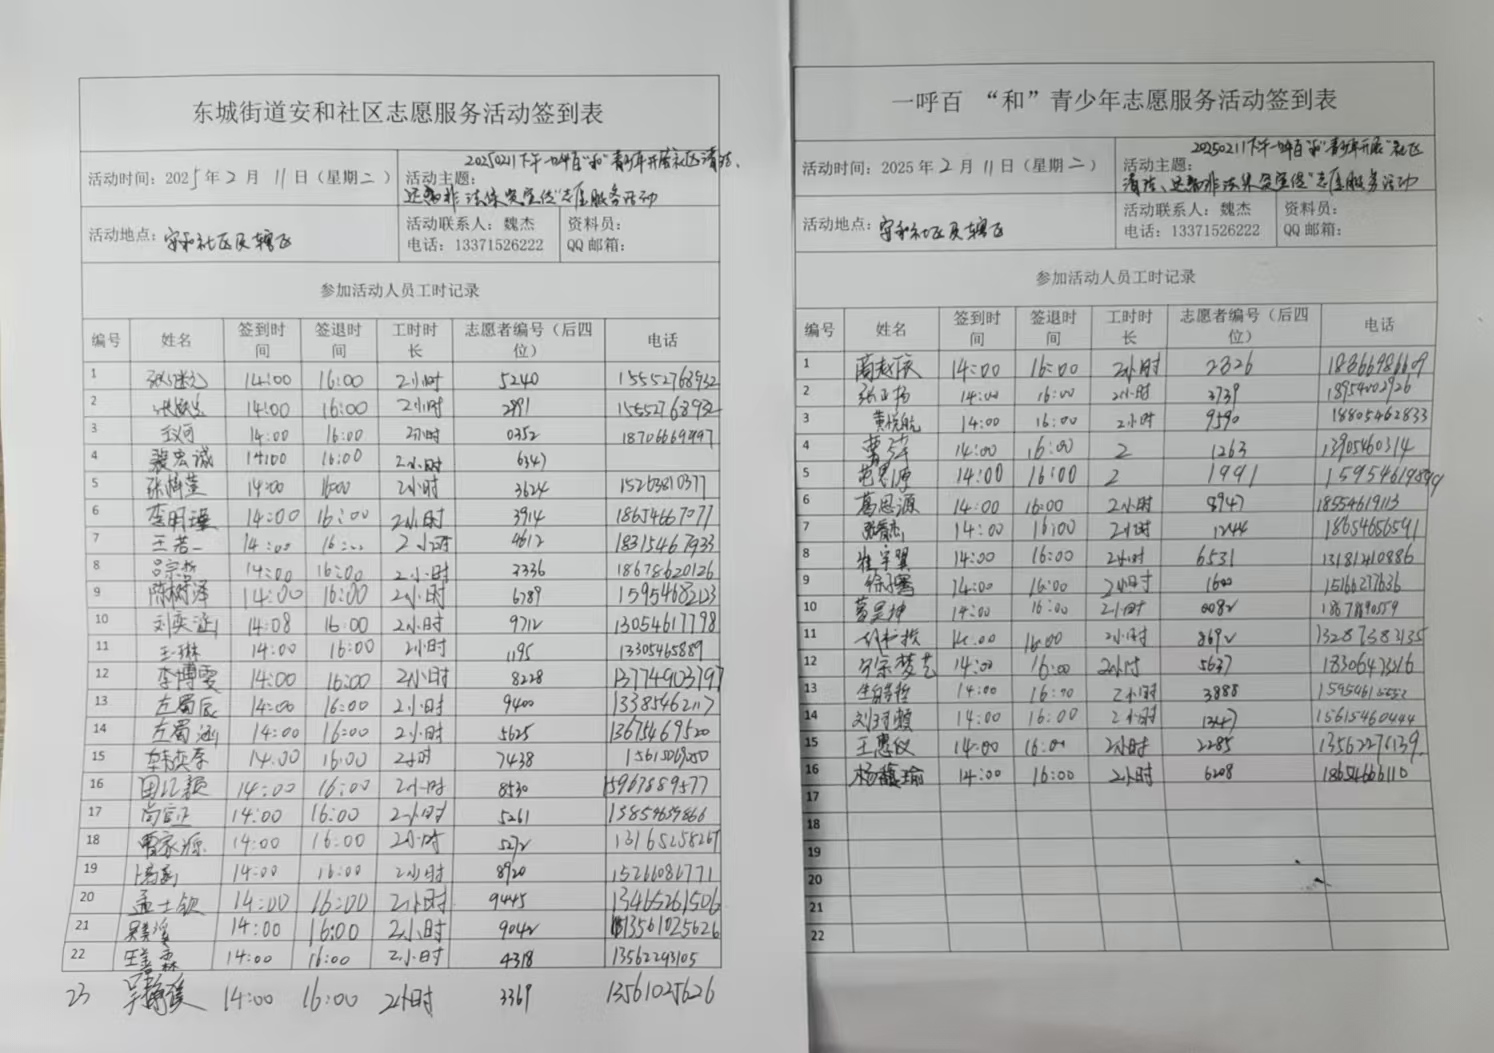 东城街道安和社区志愿服务活动签到表
活动时间：2025年2月11日（星期二） 活动主题：20250211下午一呼百“和”青少年开展社区清洁、
志愿服务活动
活动地点：安和社区及辖区 活动联系人：魏杰 电话：13371526222 资料员： QQ邮箱：
参加活动人员工时记录
编号 姓名 签到时间 签退时间 工时时长 志愿者编号（后四位） 电话
1 14:00 16:00 2小时 5240 15552768932
2 14:00 16:00 2小时 2991 15552768932
3 14:00 16:00 2小时 0352
4 裴宏诚 14:00 16:00 2小时 6347
5 14:00 16:00 2小时 3624 15263810377
6 李明瑾 14:00 16:00 2小时 3914 18654667077
7 王若一 14:00 16:00 2小时 4612 18315467933
8 吕宗哲 14:00 16:00 2小时 3336 18678620126
9 陈树泽 14:00 16:00 2小时 6789
10 刘奕涵 14:08 16:00 2小时 9712 13054617798
11 王琳 14:00 16:00 2小时 1195 13305465889
12 李博雯 14:00 16:00 2小时 8228
13 左蜀辰 14:00 16:00 2小时 9400 13385462117
14 左蜀涵 14:00 16:00 2小时 5625 13675469520
15 14:00 16:00 2小时 7438
16 14:00 16:00 2小时 8530 15967889577
17 尚 14:00 16:00 2小时 5261
18 曹家源 14:00 16:00 2小时 5272 13165258267
19 14:00 16:00 2小时 8920 15266086771
20 孟士钦 14:00 16:00 2小时 9445 13465261506
21 14:00 16:00 2小时 9042 13561025626
22 14:00 16:00 2小时 4318 13562293105
23 14:00 16:00 2小时 3369 13561025626
一呼百 “和”青少年志愿服务活动签到表
活动时间：2025年2月11日（星期二） 活动主题：20250211下午一呼百“和”青少年开展“社区
清洁、志愿服务活动
活动地点：安和社区及辖区 活动联系人：魏杰 电话：13371526222 资料员： QQ邮箱：
参加活动人员工时记录
编号 姓名 签到时间 签退时间 工时时长 志愿者编号（后四位） 电话
1 14:00 16:00 2小时 2326 18366986609
2 张正扬 14:00 16:00 2小时 3739 18954602926
3 黄悦航 14:00 16:00 2小时 9590 18805462833
4 14:00 16:00 2 1263 13905460314
5 范思源 14:00 16:00 2 1991
6 葛思源 14:00 16:00 2小时 8947 18554619113
7 14:00 16:00 2小时 1244 18654656591
8 崔宇翼 14:00 16:00 2小时 6531 13181210886
9 14:00 16:00 2小时 1600 15166277636
10 14:00 16:00 2小时 0082
11 14:00 16:00 2小时 8692 13287382135
12 14:00 16:00 2小时 5637 18306473216
13 14:00 16:00 2小时 3888
14 刘 14:00 16:00 2小时 1347 15615460444
15 王惠仪 14:00 16:00 2小时 2285 13562276139
16 杨馥瑜 14:00 16:00 2小时 6208 18654666110
17
18
19
20
21
22